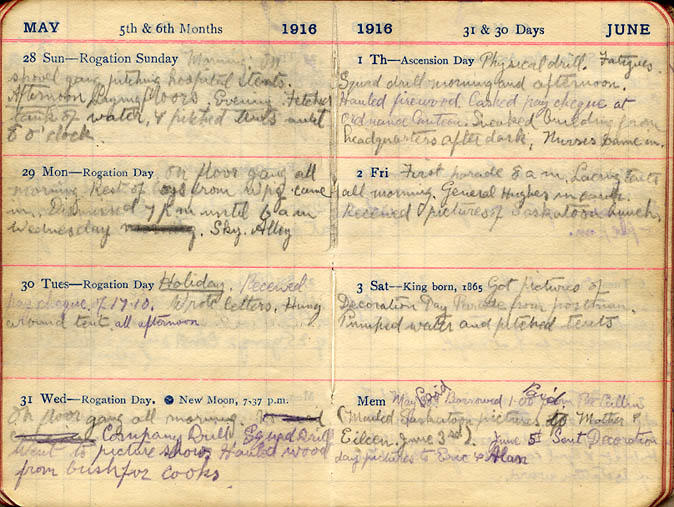 MAY 5th & 6th Months 1916
28 Sun—Rogation Sunday Morning. On
shovel gang pitching hospital tents.
Afternoon Laying floors Evening Fetched
tank of water, & pitched tents until
8 o'clock.
29 Mon—Rogation Day On floor gang all
morning Rest of boys from Wpg came
in. Dismissed 7 p.m until 6 a m
Wednesday Sky. Alley
30 Tues—Rogation Day Holiday. Received
pay cheque of 17.10. Wrote letters. Hung
around tent all afternoon
31 Wed—Rogation Day. New Moon, 7.37 p.m.
On floor gang all morning.
Company Drill, Squad Drill
Went to picture show Hauled wood
from bush for cooks
1916 31 & 30 Days JUNE
1 Th—Ascension Day Physical drill. Fatigues.
Squad drill morning and afternoon.
Hauled firewood. Cashed pay cheque at
Ordnance Canteen. Sneaked bundling from
headquarters after dark, Nurses came in.
2 Fri First parade 6 a m. Lacing tents
all morning. General Hughes in camp.
Received pictures of Saskatoon bunch.
3 Sat—King born, 1865 Got pictures of
Decoration Day Parade from postman.
Pumped water and pitched tents
Mem May Borrowed 1.00 from
(Mailed Saskatoon pictures to Mother &
Eileen June 3rd). June 5 Sent Decoration
day pictures to Eric & Alan